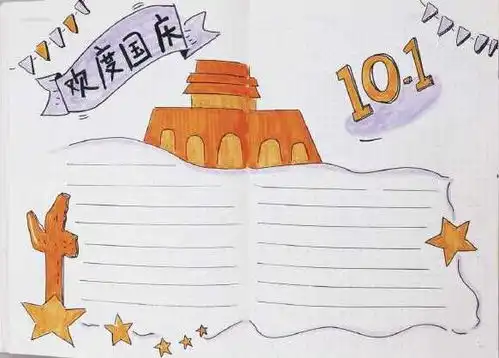 欢度国庆
10.1